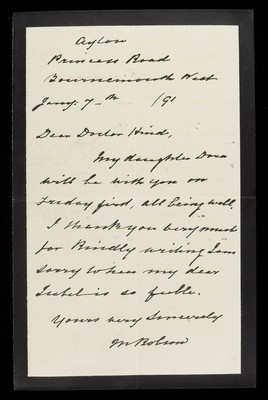 Ayton
Princess Road
Bournemouth West
Jany: 7th /91
Dear Doctor Hind,
My daughter Dora
will be with you on
Friday first, all being well.
I thank you very much
for kindly writing I am
sorry to hear my dear
is so feeble.
Yours very Sincerely
M Robson